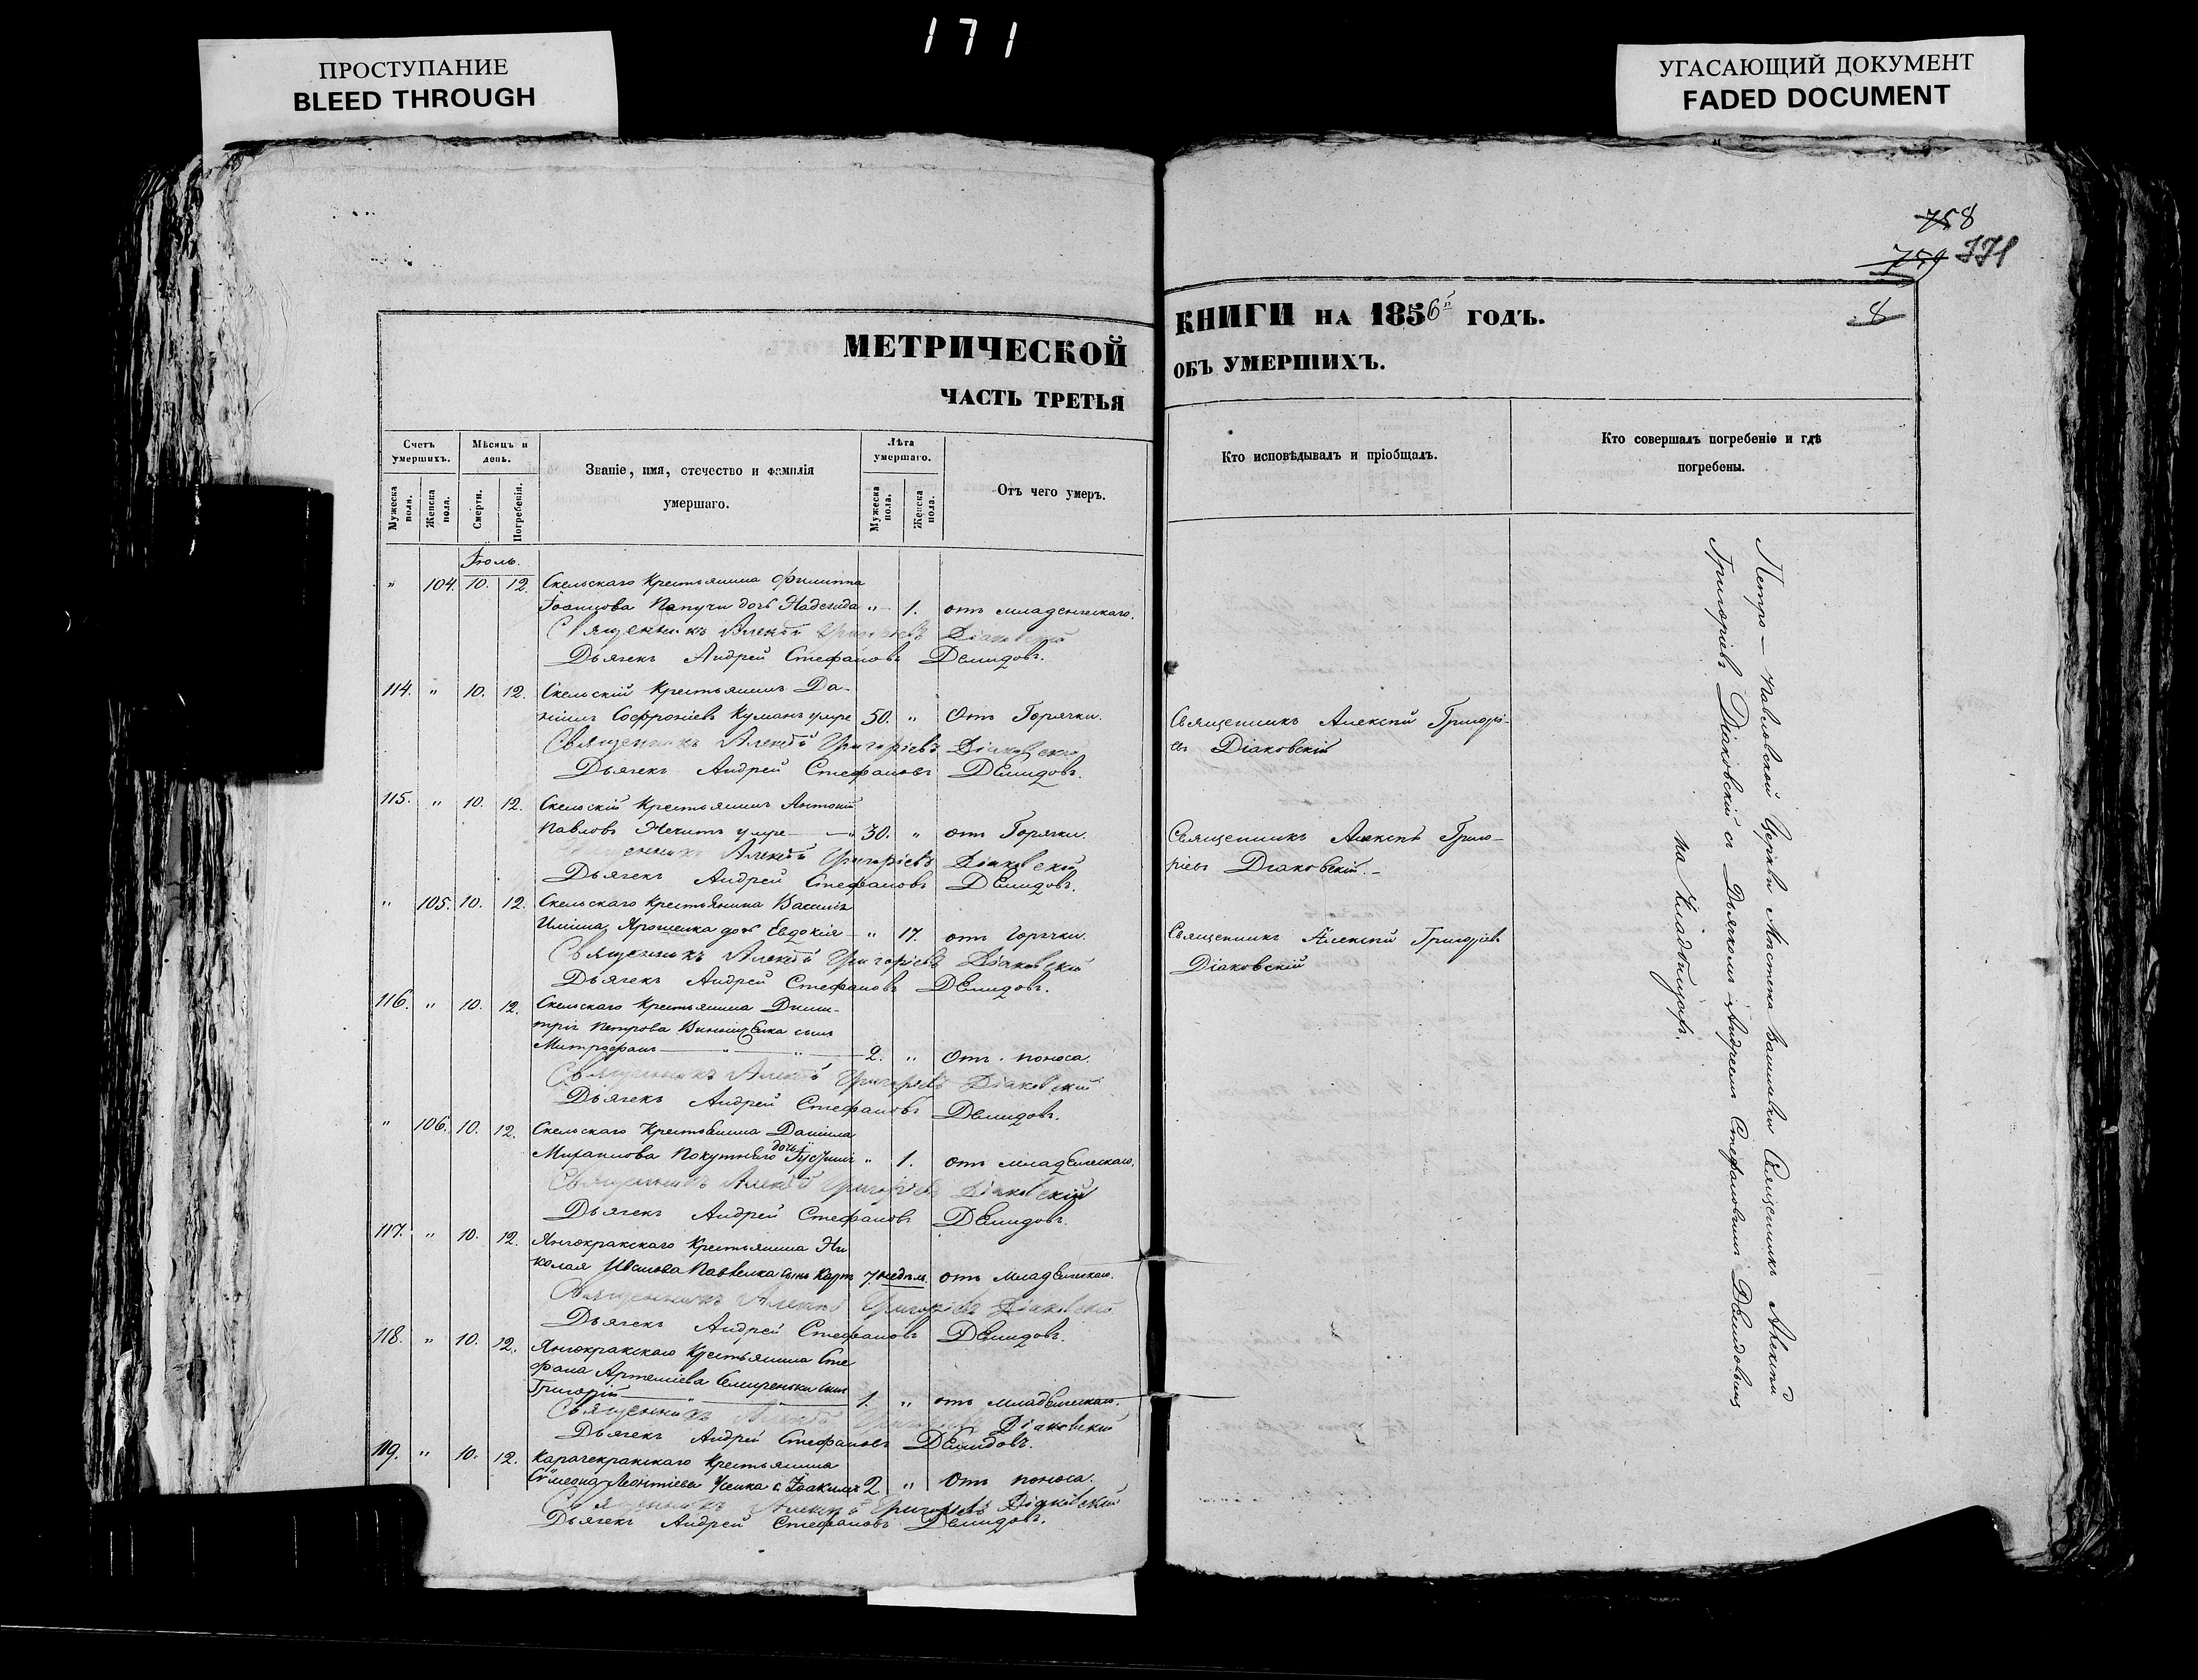 171
ПРОСТУПАНИЕ
BLEED THROUGH
УГАСАЮЩИЙ ДОКУМЕНТ
FADED DOCUMENT
758
759 771
8
МЕТРИЧЕСКОЙ
ЧАСТЬ ТРЕТЬЯ
КНИГИ НА 1856й ГОДЪ.
ОБЪ УМЕРШИХЪ.
Счетъ умершихъ.
Мужеска пола.
Женска пола.
Мѣсяцъ и день.
Смерти.
Погребенія.
Званіе, имя, отечество и фамилія
умершаго.
Лѣта умершаго.
Мужеска пола.
Женска пола.
Отъ чего умеръ.
Кто исповѣдывалъ и пріобщалъ.
Кто совершалъ погребеніе и гдѣ
погребены.
Іюль.
" 104. 10. 12. Скельскаго Крестьянина Филиппа
Іоаннова Папучи дочь Надежда " 1. отъ младенческаго.
Священникъ Алексѣй Григорьевъ Діаковскій
Дьячекъ Андрей Стефановъ Демидовъ.
114. " 10. 12. Скельскій Крестьянинъ Да-
ніилъ Софроніевъ Куманъ умре 50. " Отъ Горячки. Священникъ Алексѣй Григорі-
Священникъ Алексѣй Григоріевъ Діаковскій евъ Діаковскій
Дьячекъ Андрей Стефановъ Демидовъ.
115. " 10. 12. Скельскій Крестьянинъ Антоній
Павловъ Нечитъ умре 30. " отъ Горячки. Священникъ Алексѣй Григо-
Священникъ Алексѣй Григоріевъ Діаковскій ріевъ Діаковскій.
Дьячекъ Андрей Стефановъ Демидовъ.
" 105. 10. 12. Скельскаго Крестьянина Василія
Ильина Ярошенка дочь Евдокія " 17. отъ Горячки. Священникъ Алексѣй Григоріевъ
Священникъ Алексѣй Григоріевъ Діаковскій Діаковскій
Дьячекъ Андрей Стефановъ Демидовъ.
116. " 10. 12. Скельскаго Крестьянина Дими-
трія Петрова Винниченка сынъ
Митрофанъ " " 2. " Отъ поноса.
Священникъ Алексѣй Григоріевъ Діаковскій
Дьячекъ Андрей Стефановъ Демидовъ.
" 106. 10. 12. Скельскаго Крестьянина Даніила
Михаилова Покутнего дочь " 1. отъ младенческаго.
Священникъ Алексѣй Григоріевъ Діаковскій
Дьячекъ Андрей Стефановъ Демидовъ.
117. " 10. 12. Янчекракскаго Крестьянина Ни
колая Иванова Павленка сынъ Карпъ 7. недѣль. отъ младенческаго.
Священникъ Алексѣй Григоріевъ Діаковскій
Дьячекъ Андрей Стефановъ Демидовъ.
118. " 10. 12. Янчекракскаго Крестьянина Сте
фана Артеміева Семиренка сынъ
Григорій 1. " отъ младенческаго.
Священникъ Алексѣй Діаковскій
Дьячекъ Андрей Стефановъ Демидовъ.
119. " 10. 12. Карачекракскаго Крестьянина
Сѵмеона Леонтіева Усенка с. Іоакимъ 2 " Отъ поноса.
Священникъ Алексѣй Григоріевъ Діаковскій
Дьячекъ Андрей Стефановъ Демидовъ.
Петро-Павловской Церкви Священникъ Алексѣй
Григоріевъ Діаковскій съ Дьячкомъ Андреемъ Стефановымъ Демидовымъ
на Кладбищахъ.